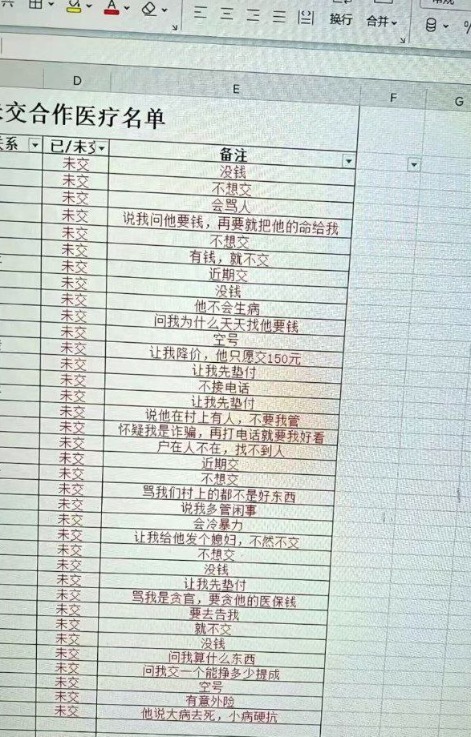 换行 合并
D E F G
交合作医疗名单
系 已/未交 备注
未交 没钱
未交 不想交
未交 会骂人
未交 说我问他要钱，再要就把他的命给我
未交 不想交
未交 有钱，就不交
未交 近期交
未交 没钱
未交 他不会生病
未交 问我为什么天天找他要钱
未交 空号
未交 让我降价，他只愿交150元
未交 让我先垫付
未交 不接电话
未交 让我先垫付
未交 说他在村上有人，不要我管
未交 怀疑我是诈骗，再打电话就要我好看
未交 户在人不在，找不到人
未交 近期交
未交 不想交
未交 骂我们村上的都不是好东西
未交 说我多管闲事
未交 会冷暴力
未交 让我给他发个媳妇，不然不交
未交 不想交
未交 没钱
未交 让我先垫付
未交 骂我是贪官，要贪他的医保钱
未交 要去告我
未交 就不交
未交 没钱
未交 问我算什么东西
未交 问我交一个能挣多少提成
未交 空号
未交 有意外险
未交 他说大病去死，小病硬抗